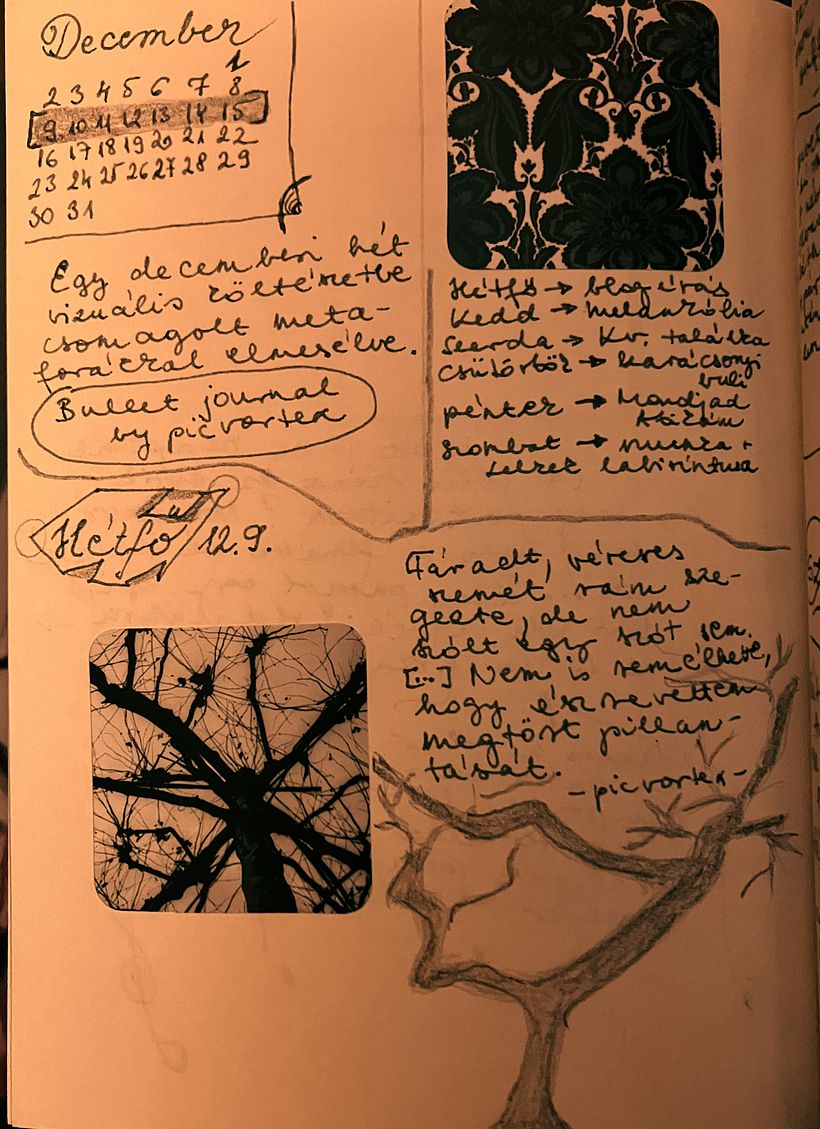 December
1
2 3 4 5 6 7 8
9 10 11 12 13 14 15
16 17 18 19 20 21 22
23 24 25 26 27 28 29
30 31
Egy decemberi hét
vizuális költészetbe
csomagolt meta-
forákkal elmesélve.
Bullet journal
by picvortex
Hétfő → blogírás
Kedd → melankólia
Szerda → Kv. találka
csütörtök → karácsonyi
buli
péntek → Mondjad
Atikám
szombat → munka +
lelkek labirintusa
Hétfő 12.9.
Fáradt, véreres
szemét rám sze-
gezte, de nem
szólt egy szót sem.
[...] Nem is remélhette,
hogy észrevettem
megtört pillan-
tását.
-picvortex-